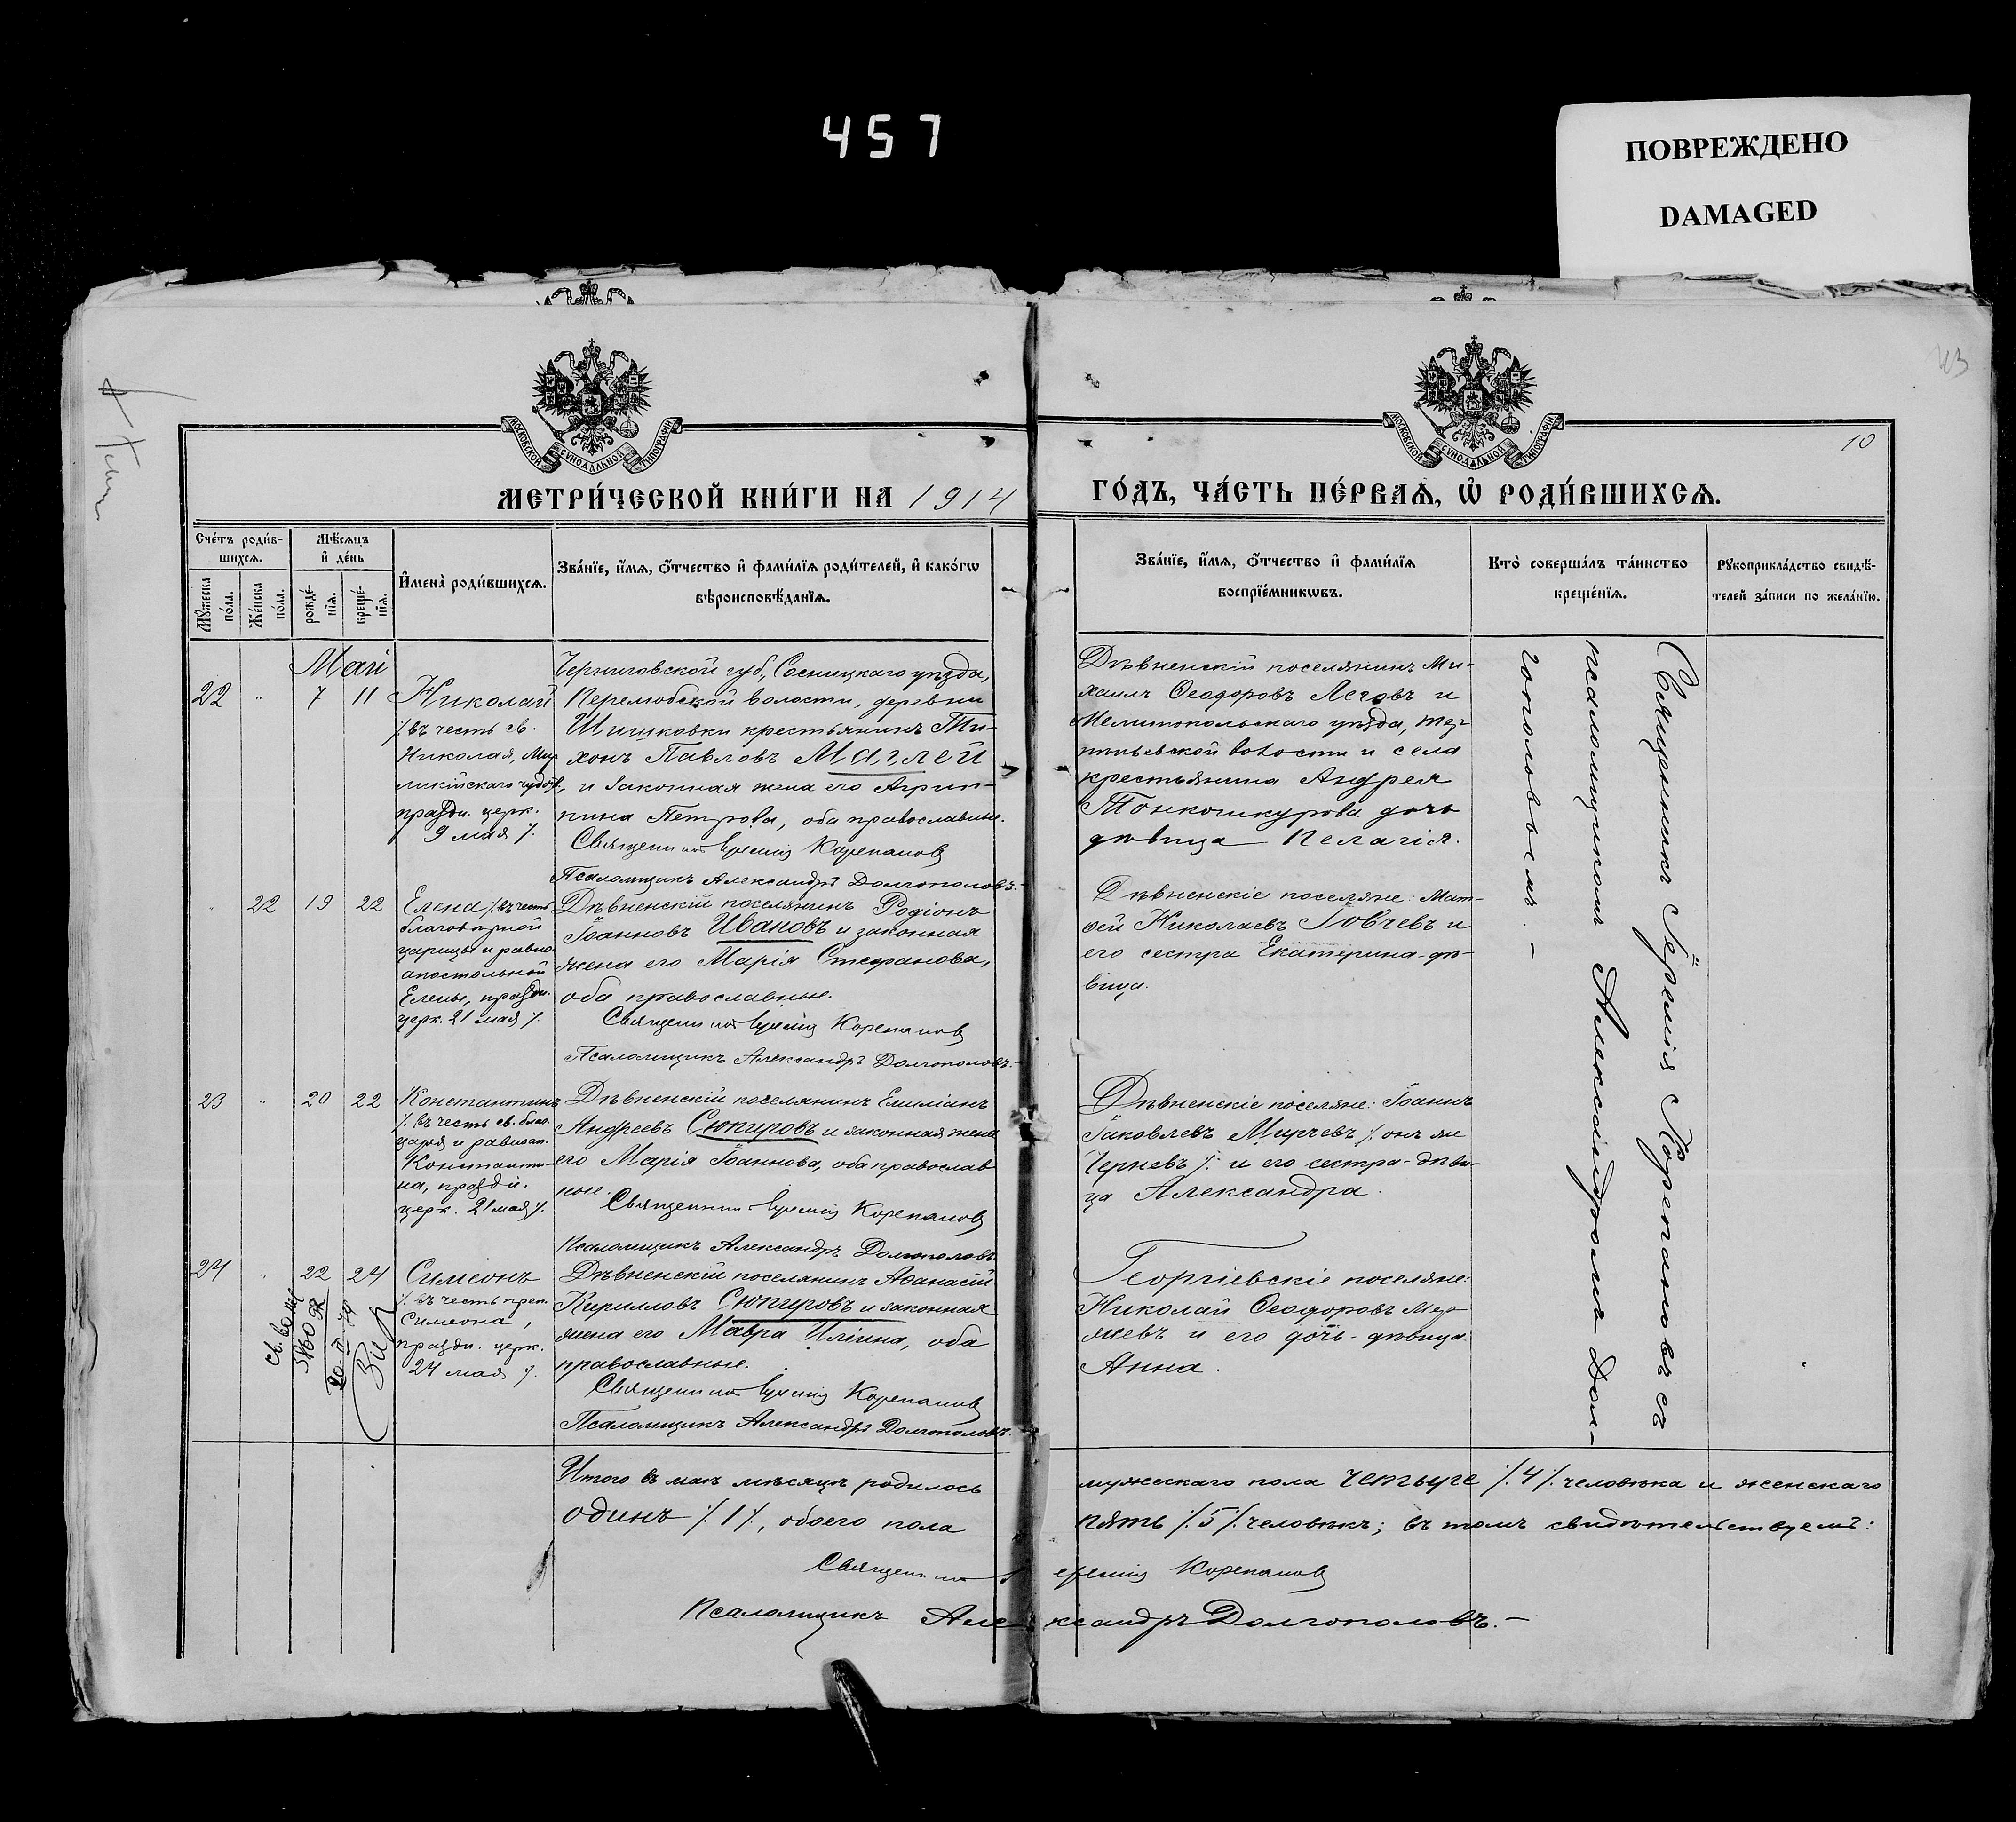 457
ПОВРЕЖДЕНО
DAMAGED
43
10
МОСКОВСКОЙ СѴНОДАЛЬНОЙ ТИПОГРАФІИ
МОСКОВСКОЙ СѴНОДАЛЬНОЙ ТИПОГРАФІИ
МЕТРИ́ЧЕСКОЙ КНИ́ГИ НА 1914
ГО́ДЪ, ЧА́СТЬ ПЕ́РВАѦ, Ѡ҆ РОДИ́ВШИХСѦ.
Сче́тъ роди́в-
шихсѧ.
Мꙋжеска по́ла.
Же́нска по́ла.
Мѣ́сѧцъ
и҆ де́нь
рожде́-
нїѧ.
креще́-
нїѧ.
И҆мена̀ роди́вшихсѧ.
Зва́нїе, и҆́мѧ, ѻ҆́тчество и҆ фами́лїѧ роди́телей, и҆ како́гѡ
вѣроисповѣ́данїѧ.
Зва́нїе, и҆́мѧ, ѻ҆́тчество и҆ фами́лїѧ
воспрїе́мникѡвъ.
Кто̀ соверша́лъ та́инство
креще́нїѧ.
Рꙋкоприкла́дство свидѣ́-
телей за́писи по жела́нїю.
Май
22 " 7 11
Николай
/. въ честь св.
Николая, Мир
ликійскаго чудотв.,
праздн. церк.
9 мая /.
Черниговской губ., Сосницкаго уѣзда,
Перелюбской волости, деревни
Шишковки крестьянинъ Ти-
хонъ Павловъ Маглей
и законная жена его Агрип-
пина Петрова, оба православные.
Священникъ Іеремія Корепановъ
Псаломщикъ Александръ Долгополовъ.
Дѣвненскій поселянинъ Ми-
хаилъ Ѳеодоровъ Лечовъ и
Мелитопольскаго уѣзда,
волости и села
крестьянина Андрея
Тонкошкурова дочь
дѣвица Пелагія.
" 22 19 22
Елена /. въ честь
благовѣрной
царицы и равно-
апостольной
Елены, праздн.
церк. 21 мая /.
Дѣвненскій поселянинъ Родіонъ
Іоанновъ Ивановъ и законная
жена его Марія Стефанова,
оба православные.
Священникъ Іеремія Корепановъ
Псаломщикъ Александръ Долгополовъ.
Дѣвненскіе поселяне: Мат-
ѳей Николаевъ Іовчевъ и
его сестра Екатерина-дѣ-
вица.
23 " 20 22
Константинъ
/. въ честь св. благ.
царя и равноап.
Константи-
на, праздн.
церк. 21 мая /.
Дѣвненскій поселянинъ Емиліанъ
Андреевъ Сюпуровъ и законная жена
его Марія Іоаннова, оба православ
ные.
Священникъ Іеремія Корепановъ
Псаломщикъ Александръ Долгополовъ
Дѣвненскіе поселяне: Іоаннъ
Іаковлевъ Мирчевъ /. онъ же
Черневъ /. и его сестра-дѣви-
ца Александра.
24 " 22 24
Симеонъ
/. въ честь преп.
Симеона,
праздн. церк.
24 мая /.
Дѣвненскій поселянинъ Аѳанасій
Кирилловъ Сюпуровъ и законная
жена его Мавра Иліина, оба
православные.
Священникъ Іеремія Корепановъ
Псаломщикъ Александръ Долгополовъ.
Георгіевскіе поселяне:
Николай Ѳеодоровъ Мер-
жевъ и его дочь-дѣвица
Анна.
Священникъ Іеремія Корепановъ съ
псаломщикомъ Александромъ Дол-
гополовымъ. —
Итого въ маѣ мѣсяцѣ родилось мужескаго пола четыре /. 4 /. человѣка и женскаго
одинъ /. 1 /., обоего пола пять /. 5 /. человѣкъ; въ томъ свидѣтельствуемъ:
Священникъ Іеремія Корепановъ
Псаломщикъ Александръ Долгополовъ. —